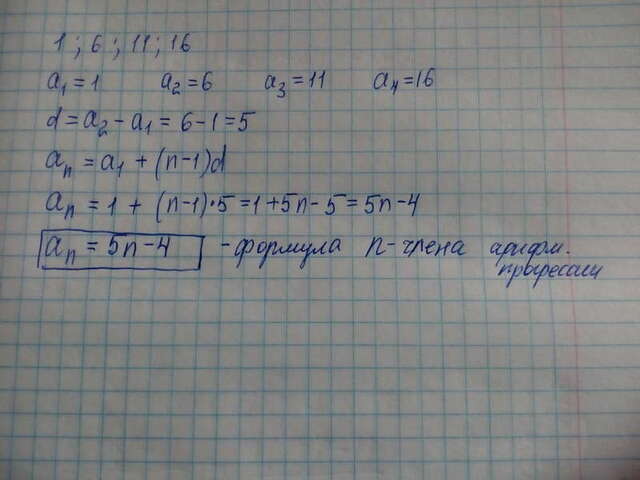 1 ; 6 ; 11 ; 16
a₁ = 1 a₂ = 6 a₃ = 11 a₄ = 16
d = a₂ - a₁ = 6 - 1 = 5
aₙ = a₁ + (n-1)d
aₙ = 1 + (n-1)·5 = 1 + 5n - 5 = 5n - 4
aₙ = 5n - 4 - формула n-члена арифм.
прогрессии